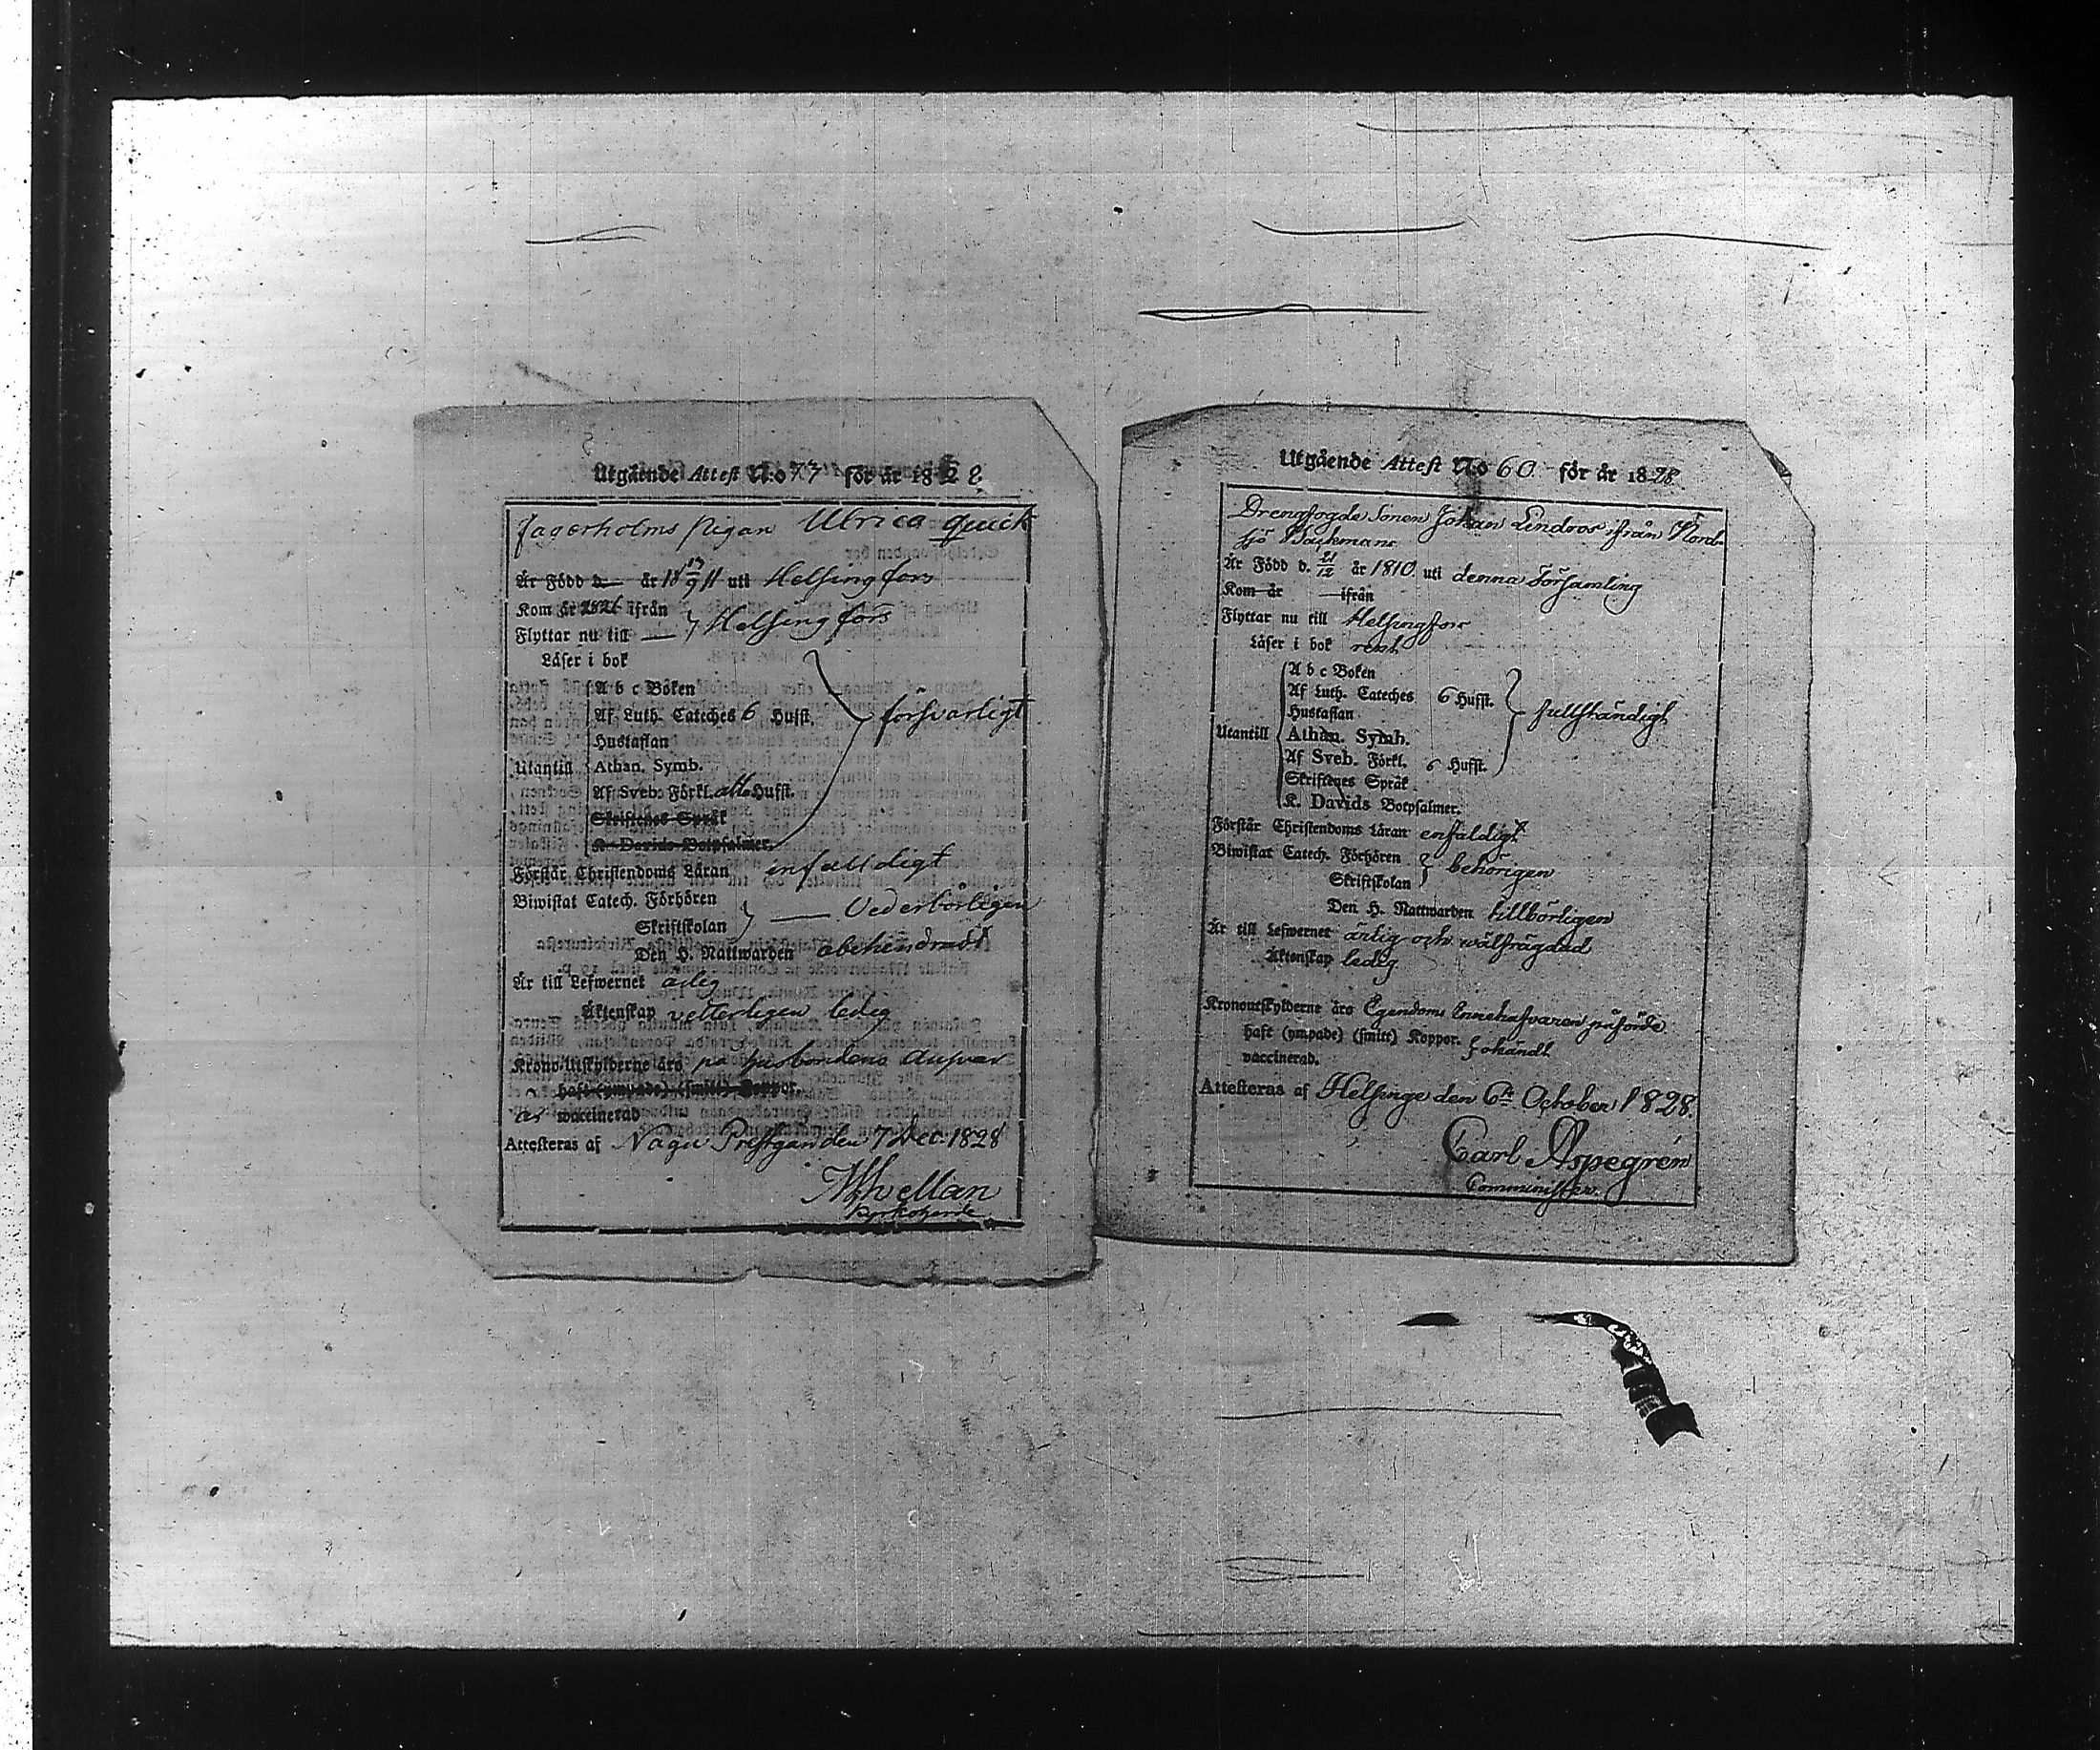 Utgående Attest N:o 77 för år 1828
Jagerholms Pigan Ulrica Quick
Är Född d. — år 18 17/9 11 uti Helsingfors
Kom år ifrån
Flyttar nu till — Helsingfors
Läser i bok
A b c Boken
Af Luth. Cateches 6 Hufst. försvarligt
Hustaflan
Utantill Athan. Symb.
Af Sveb. Förkl. alla Hufst.
Skriftenes Språk
K. Davids Botpsalmer.
Förstår Christendoms Läran enfalldigt
Biwistat Catech. Förhören
Skriftskolan — Vederbörligen
Den H. Nattwarden obehindradt
Är till Lefwernet ärlig
Äktenskap vetterligen ledig
Krono-Utskylderne äro på husbondens Ansvar
haft (ympade) (smitt) Koppor.
är vaccinerad
Attesteras af Nagu Prestgård den 7 Dec. 1828
Kyrkoherde
Utgående Attest N:o 60 för år 1828
Drengfogde Sonen Johan Lindroos ifrån Nord-
sjö Backmans
Är Född d. 21/12 år 1810 uti denna Församling
Kom år — ifrån
Flyttar nu till Helsingfors
Läser i bok rent
A b c Boken
Af Luth. Cateches 6 Hufst.
Hustaflan fullständigt
Utantill Athan. Symb.
Af Sveb. Förkl. 6 Hufst.
Skriftenes Språk
K. Davids Botpsalmer.
Förstår Christendoms Läran enfaldigt
Biwistat Catech. Förhören
Skriftskolan behörigen
Den H. Nattwarden tillbörligen
Är till Lefwernet ärlig och wälfrägdad
Äktenskap ledig
Kronoutskylderne äro Egendoms Innehafvaren påförde
haft (ympade) (smitt) Koppor. okändt
vaccinerad.
Attesteras af Helsinge den 6te October 1828.
Carl Aspegrén
Comminister.